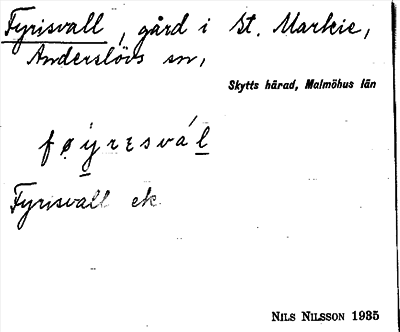 Fyrisvall, gård i St. Markie,
Anderslövs sn,
Skytts härad, Malmöhus län
føy̱rɛsvá l̲
Fyrisvall ek
NILS NILSSON 1935